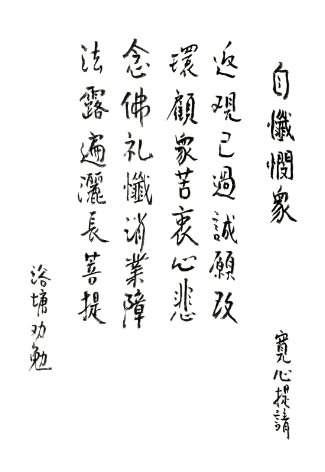 自懺憫眾
寬心提請
近現已過誠願改
環顧眾苦衷心悲
念佛礼懺消業障
法露遍灑長菩提
浴塘劝勉